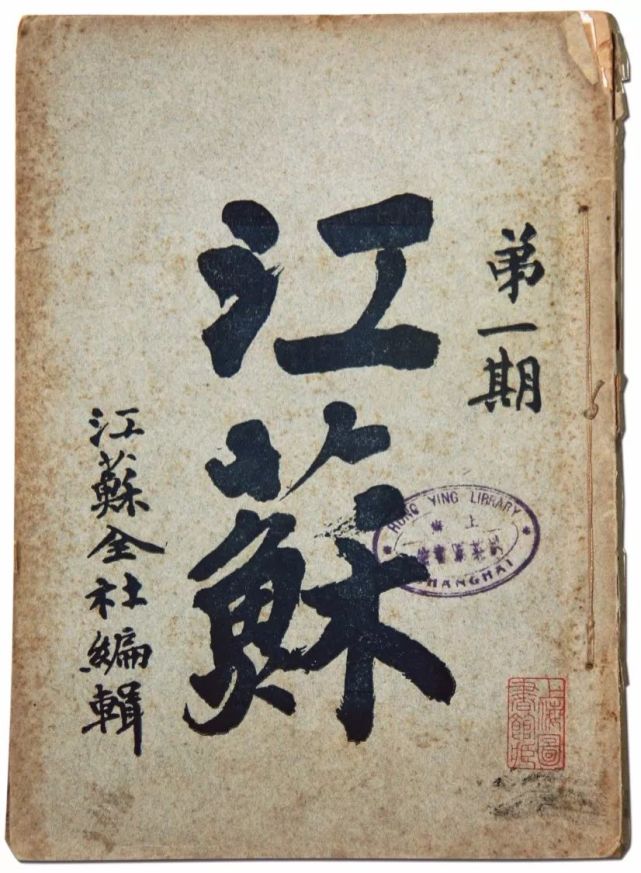 第一期
江蘇
江蘇全社編輯
HUNG YING LIBRARY
上海
SHANGHAI
上海圖
書館藏